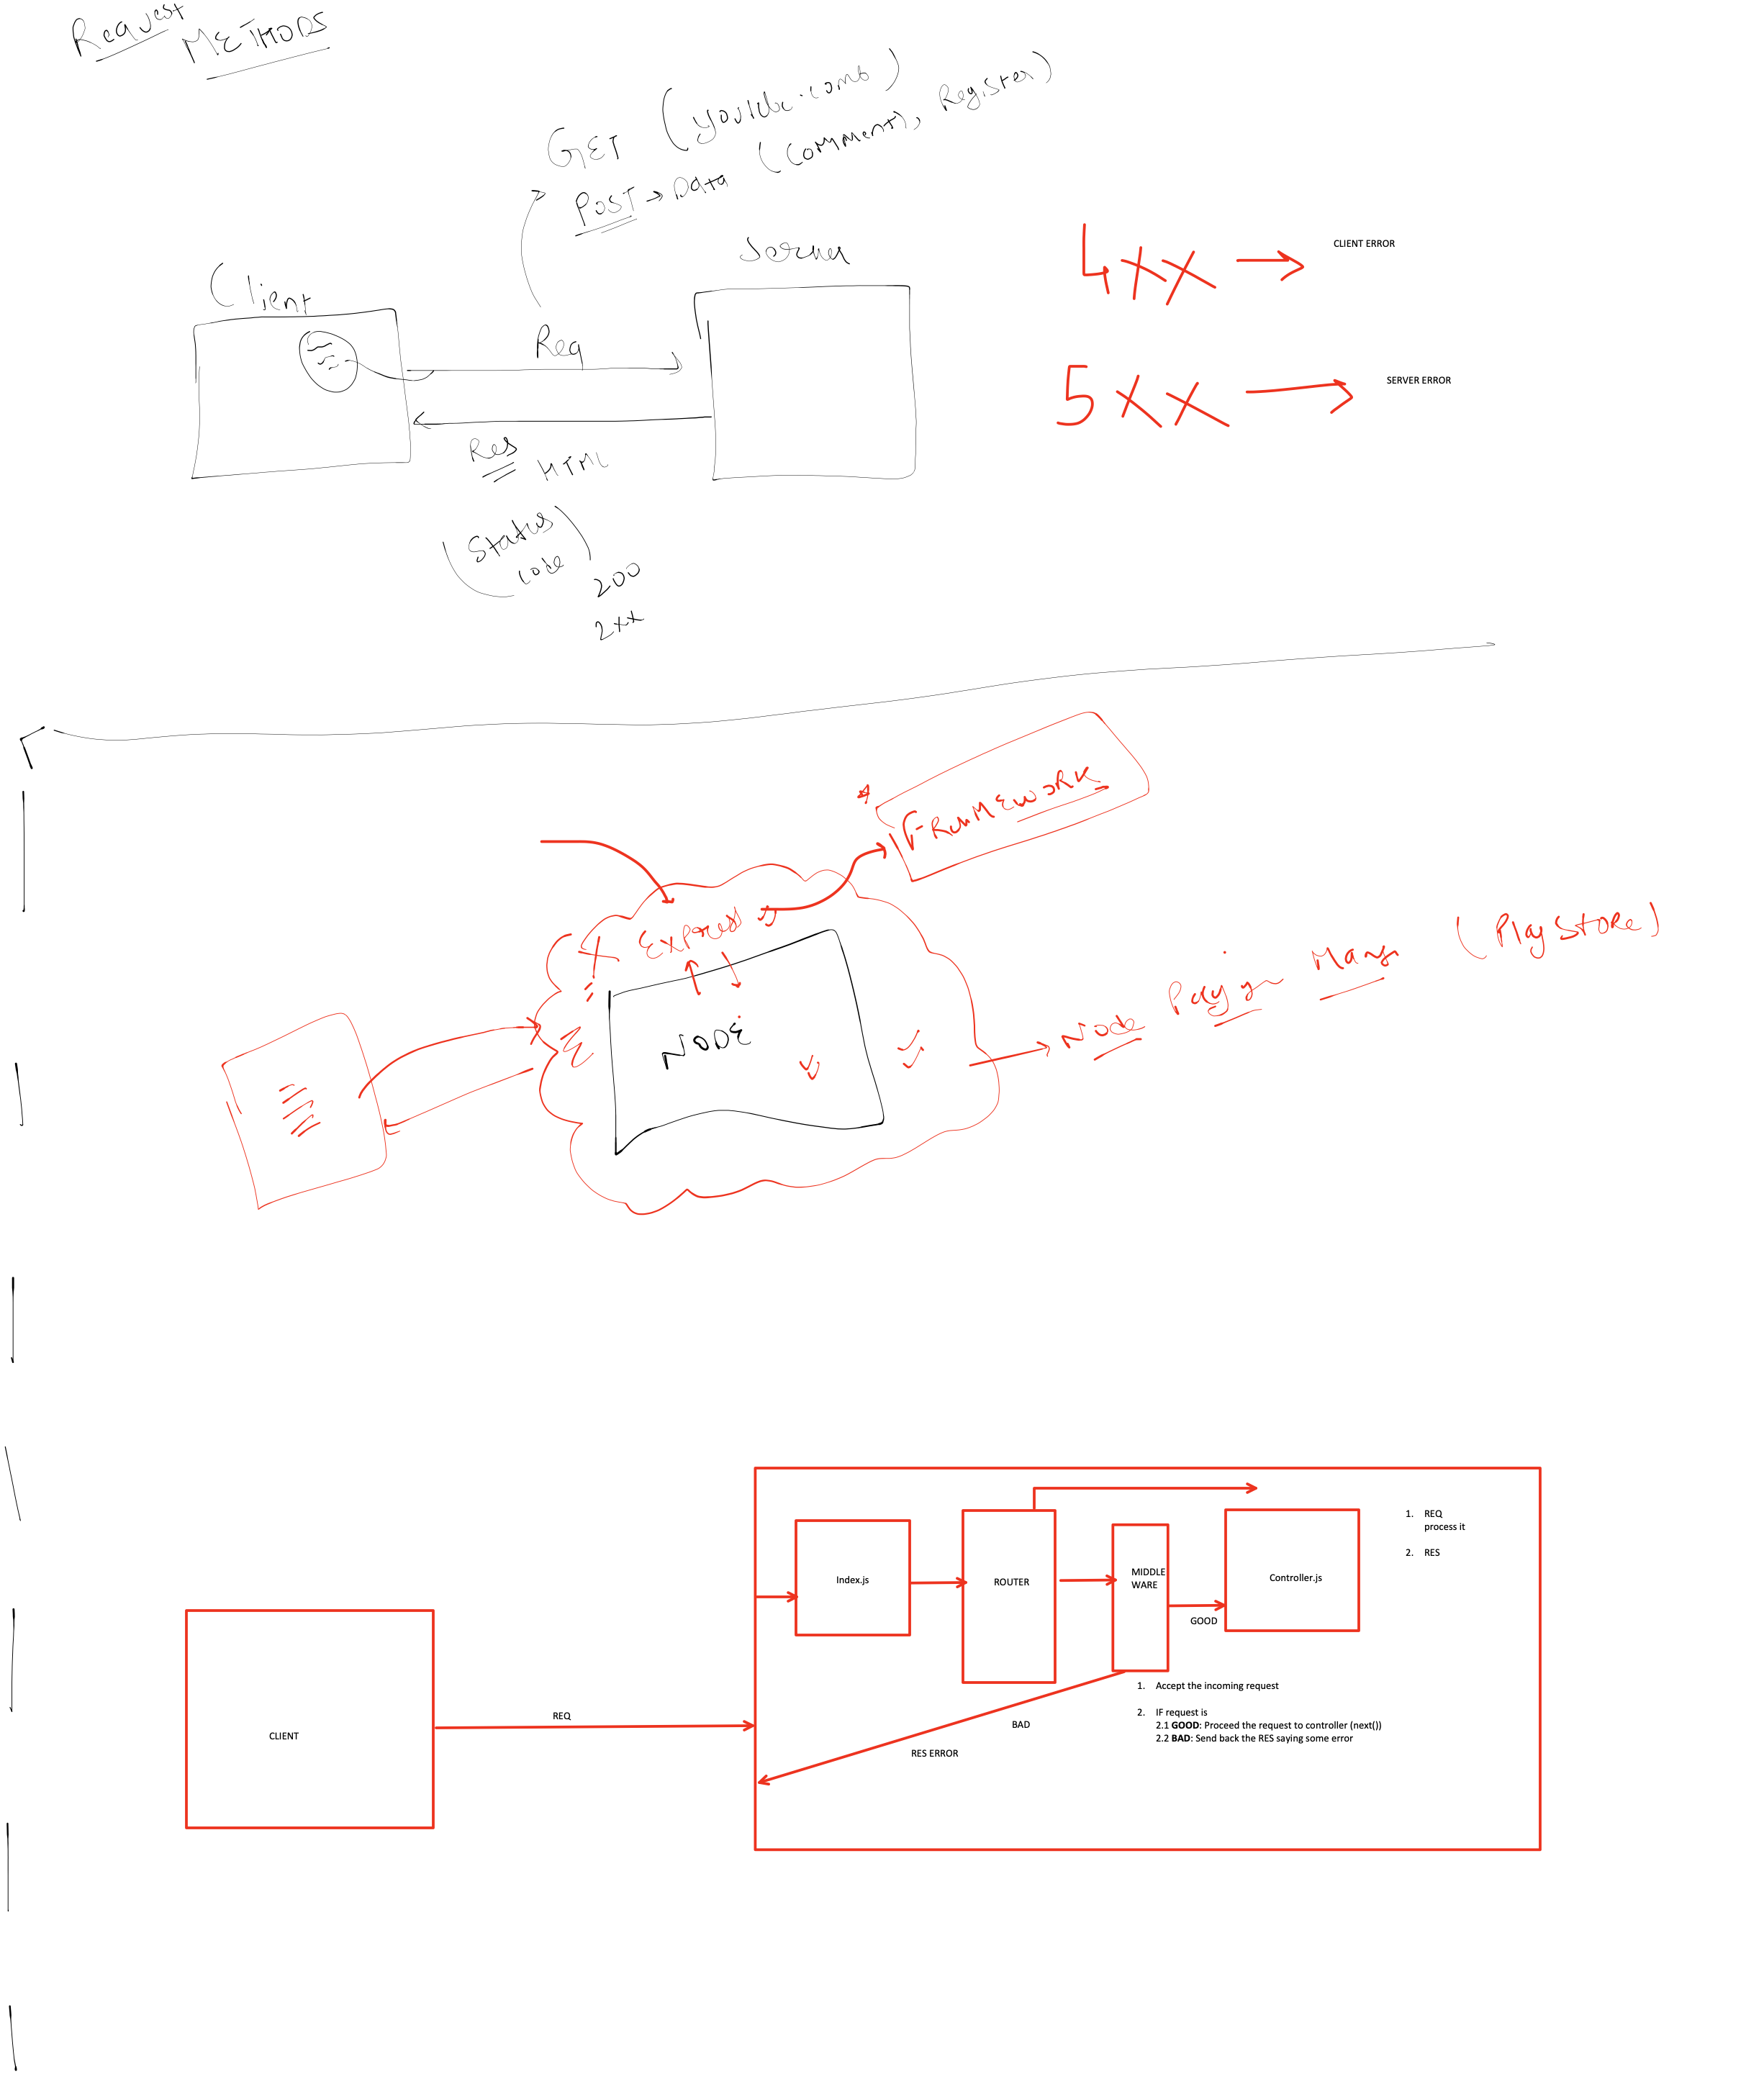 Request
METHODS
GET (youtube.com)
POST → Data (Comment), Register)
Client
Server
Req
Res
HTML
(Status
code)
200
2xx
4xx →
CLIENT ERROR
5xx →
SERVER ERROR
FRAMEWORK
Express
NODE
Node (PlayStore)
Index.js
ROUTER
MIDDLE
WARE
GOOD
Controller.js
1. REQ
process it
2. RES
CLIENT
REQ
BAD
RES ERROR
1. Accept the incoming request
2. IF request is
2.1 GOOD: Proceed the request to controller (next())
2.2 BAD: Send back the RES saying some error